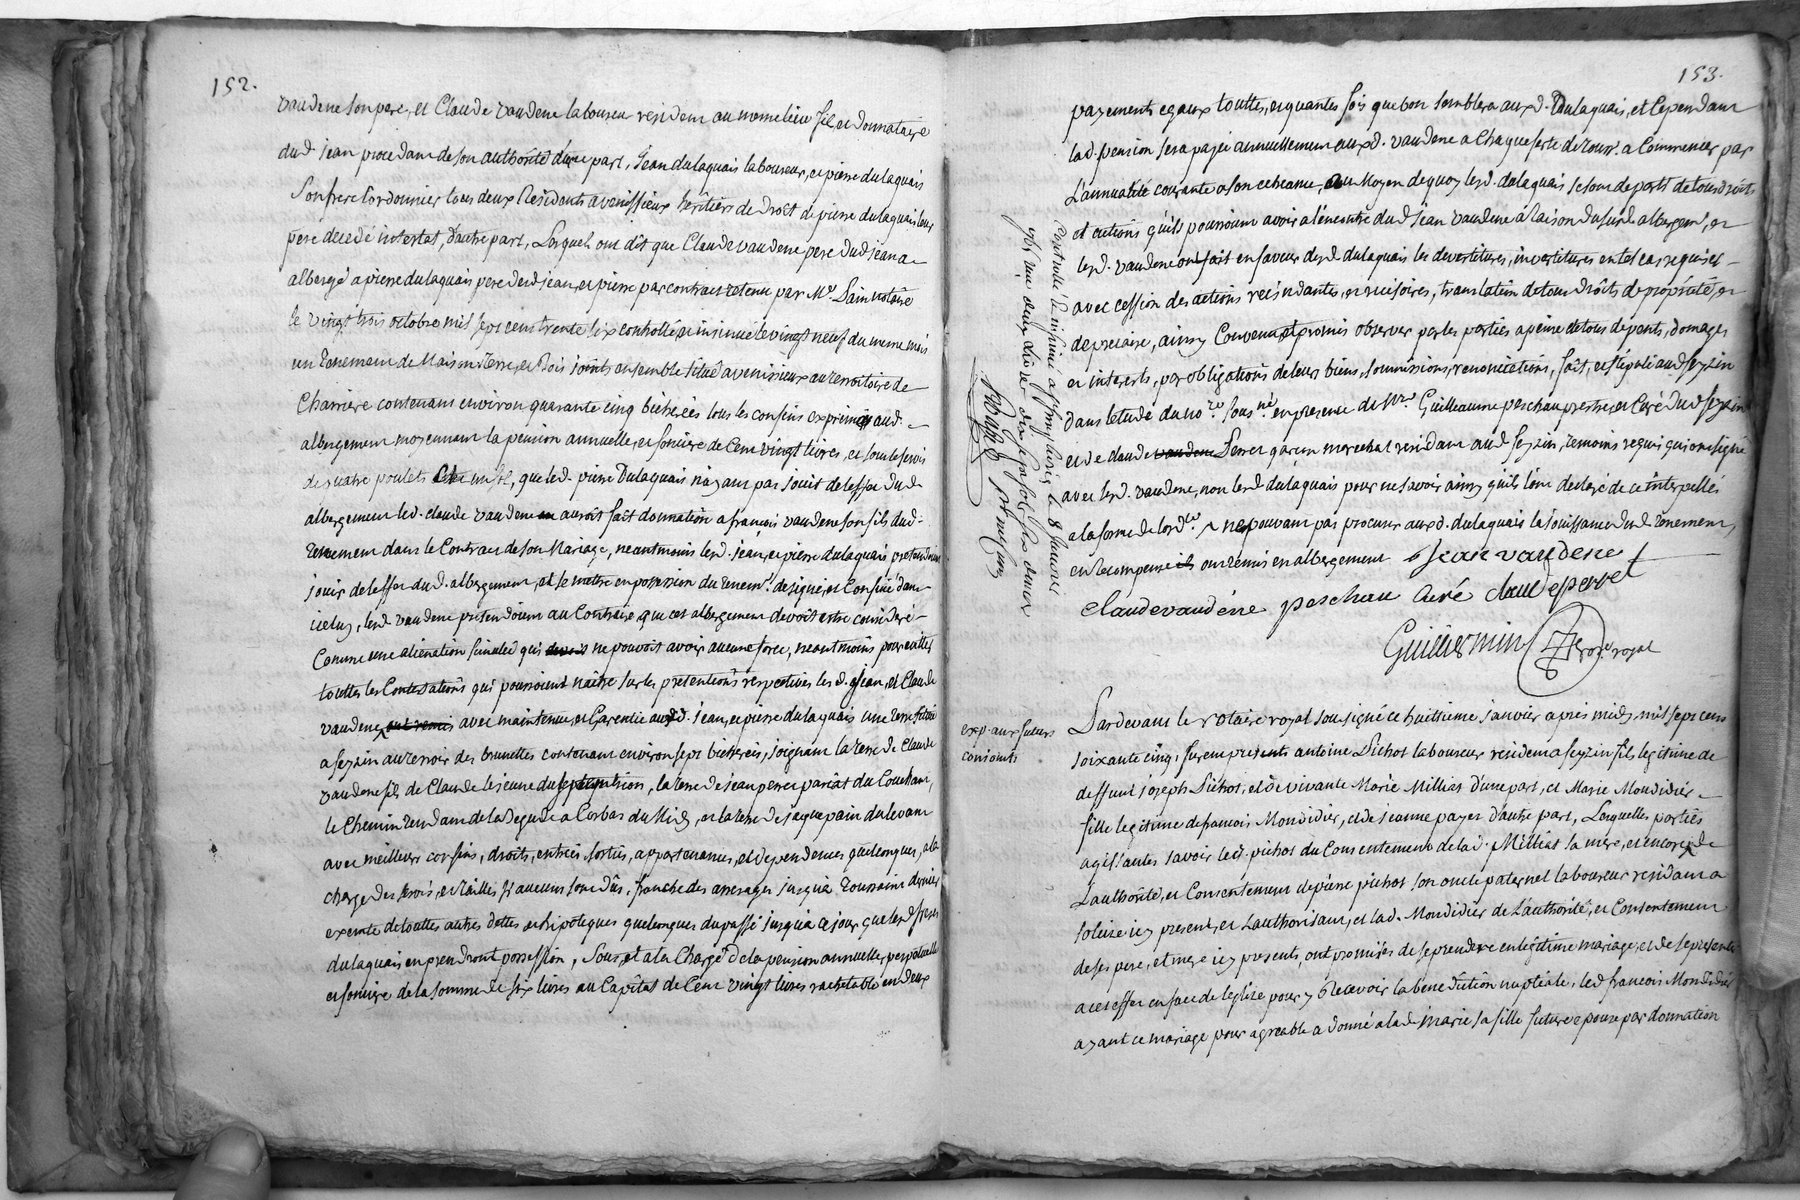 152.
vaudene son pere, et Claude vaudene laboureur resident au meme lieu fil et donnataire
dud. jean procedant de son authorité d'une part, Jean dulaquais laboureur, et pierre dulaquais
son frere Cordonnier tous deux Residents a venissieux heritiers de droit de pierre dulaquais leur
pere decedé intestat, d'autre part, Lesquels ont dit que Claude vaudene pere dud jean a
albergé a pierre dulaquais pere desd jean, et pierre par contract retenu par Me. Sain notaire
le vingt trois octobre mil sept cens trente six controllé et insinué le vingt neuf du meme mois
un tenement de Maison terre, et Bois joints ensemble situé a venissieux au territoire de
Charriere contenant environ quarante cinq bicherées sous les confins exprimés aud.
albergement moyennant la pension annuelle, et fonciere de Cent vingt livres, et sous le servis
de quatre poulets, que led. pierre Dulaquais n'ayant pas jouit de l'effet dud.
albergement led. claude vaudene auroit fait donnation a francois vaudene son fils dud.
tenement dans le Contrac de son Mariage, neantmoins lesd. jean, et pierre dulaquais pretendoient
jouir de l'effet dud. albergement, et se mettre en possession du tenemt. designé, et Confiné dans
icelui, lesd vaudene pretendoient au Contraire que cet albergement devoit estre consideré
Comme une alienation simulée qui ne pouvoit avoir aucune force, neantmoins pour eviter
touttes les Contestations qui pourroient naitre sur les pretentions respectives lesd. jean, et Claude
vaudene ont remis avec maintenue, et Garentie auxd. jean, et pierre dulaquais une terre située
a feyzin au terroir des brunettes contenant environ sept bicherées, joignant la terre de Claude
vaudene fils de Claude le jeune du septentrion, la terre de jean pariat du Couchant,
le Chemin tendant de la Begude a Corbas du Midy, et la terre de jacque pain du levant
avec meilleurs confins, droits, entrées sorties, appartenances, et dependences quelconques, a la
charge des servis, et tailles si aucuns sont dûs, franche des arrerages jusqu'a toussaint dernier
exempte de touttes autres dettes et hipoteques quelconques du passé jusqu'a ce jour que lesd freres
dulaquais en prendront possession, Sous, et a la Charge de la pension annuelle, perpetuelle
et fonciere de la somme de six livres au Capital de Cent vingt livres rachetable en deux
153.
payements egaux touttes, et quantes fois que bon semblera auxd. Dulaquais, et Cependant
lad. pension sera payée annuellement auxd. vaudene a Chaque feste de touss. a Commencer par
L'annualité courante a son echeance, au Moyen de quoy lesd. dulaquais se sont departis de tous droits
et actions qu'ils pourroient avoir a l'encontre dud Jean vaudene a raison du susd. albergemt, et
lesd. vaudene ont fait en faveur desd dulaquais les devestitures, investitures en tel cas requises
avec cession des actions rescindantes, et rescisoires, translation de tous droits de proprieté, et
de precaire, ainsy Convenu, et promis observer par les parties a peine de tous depents, domages
et interests, par obligations de leurs biens, soumissions, renonciations, fait, et stipulé aud feyzin
dans l'etude du nore. sousné. en presence de Mre. Guilleaume peschau prestre, et Curé dud feyzin
et de claude Perret garçon marechal residant aud feyzin, temoins requis qui ont signé
avec lesd. vaudene, non lesd dulaquais pour ne savoir ainsy qu'ils l'ont declaré de ce interpellés
a la forme de l'ordce. ^ ne pouvant pas procurer auxd. dulaquais la jouissance dud. tenement,
en recompense ils ont remis en albergement jean vaudene
claude vaudéne peschau Curé claude perret
Guilliermin nore. royal
Controllé et insinué a St simphorien le 8 janvier
Guilliermin
exp. aux futurs
conjoints
Pardevant le Notaire royal sousigné ce huittieme janvier apres midy mil sept cens
soixante cinq, furent presents antoine Pichot laboureur resident a feyzin fils legitime de
deffunt joseph Pichot, et de vivante Marie Milliat d'une part, et Marie Mondidier
fille legitime de francois Mondidier, et de jeanne payet d'autre part, Lesquelles parties
agissantes savoir led. pichot du Consentement de lad. Milliat sa mere, et encore de
L'authorité, et Consentement de pierre pichot son oncle paternel laboureur residant a
solaize icy present, et L'authorisant, et lad. Mondidier de L'authorité, et Consentement
de ses pere, et mere icy presents, ont promis de se prendre en legitime mariage, et de se presenter
a cet effet en face de l'eglise pour y Recevoir la benediction nuptiale, led francois Mondidier
ayant ce mariage pour agreable a donné a lad. marie sa fille future epouze par donnation